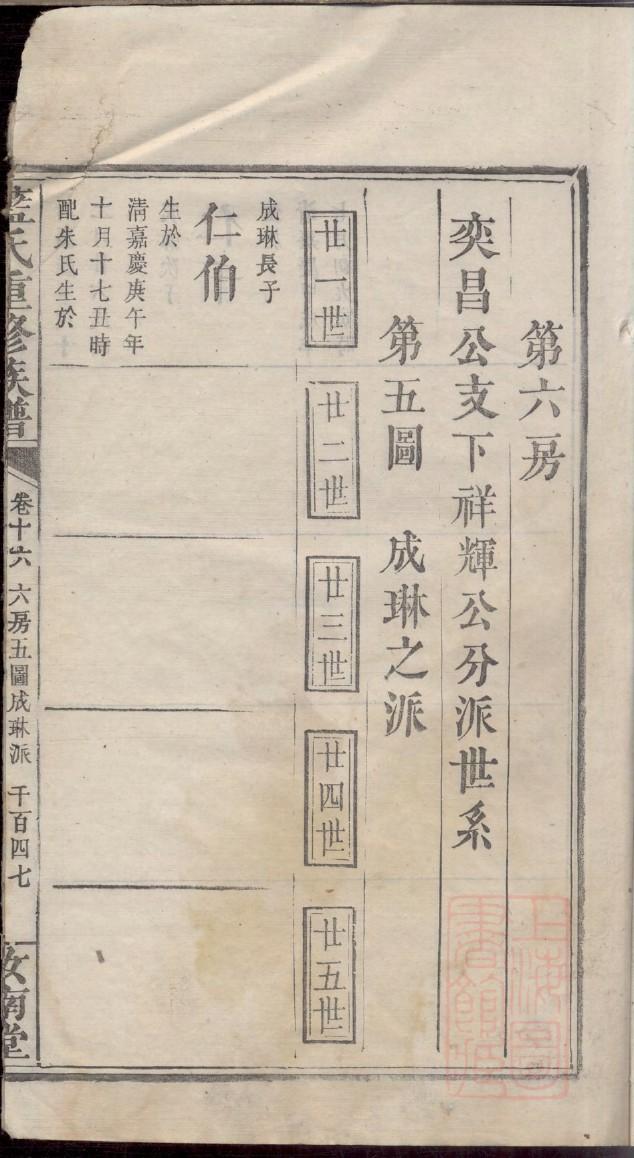 第六房
奕昌公支下祥輝公分派世系
第五圖 成琳之派
廿一世
廿二世
廿三世
廿四世
廿五世
成琳長子
仁伯
生於
清嘉慶庚午年
十月十七丑時
配朱氏生於
藍氏重修族譜
卷十六 六房五圖成琳派 千百四七
汝南堂
上海圖書館藏